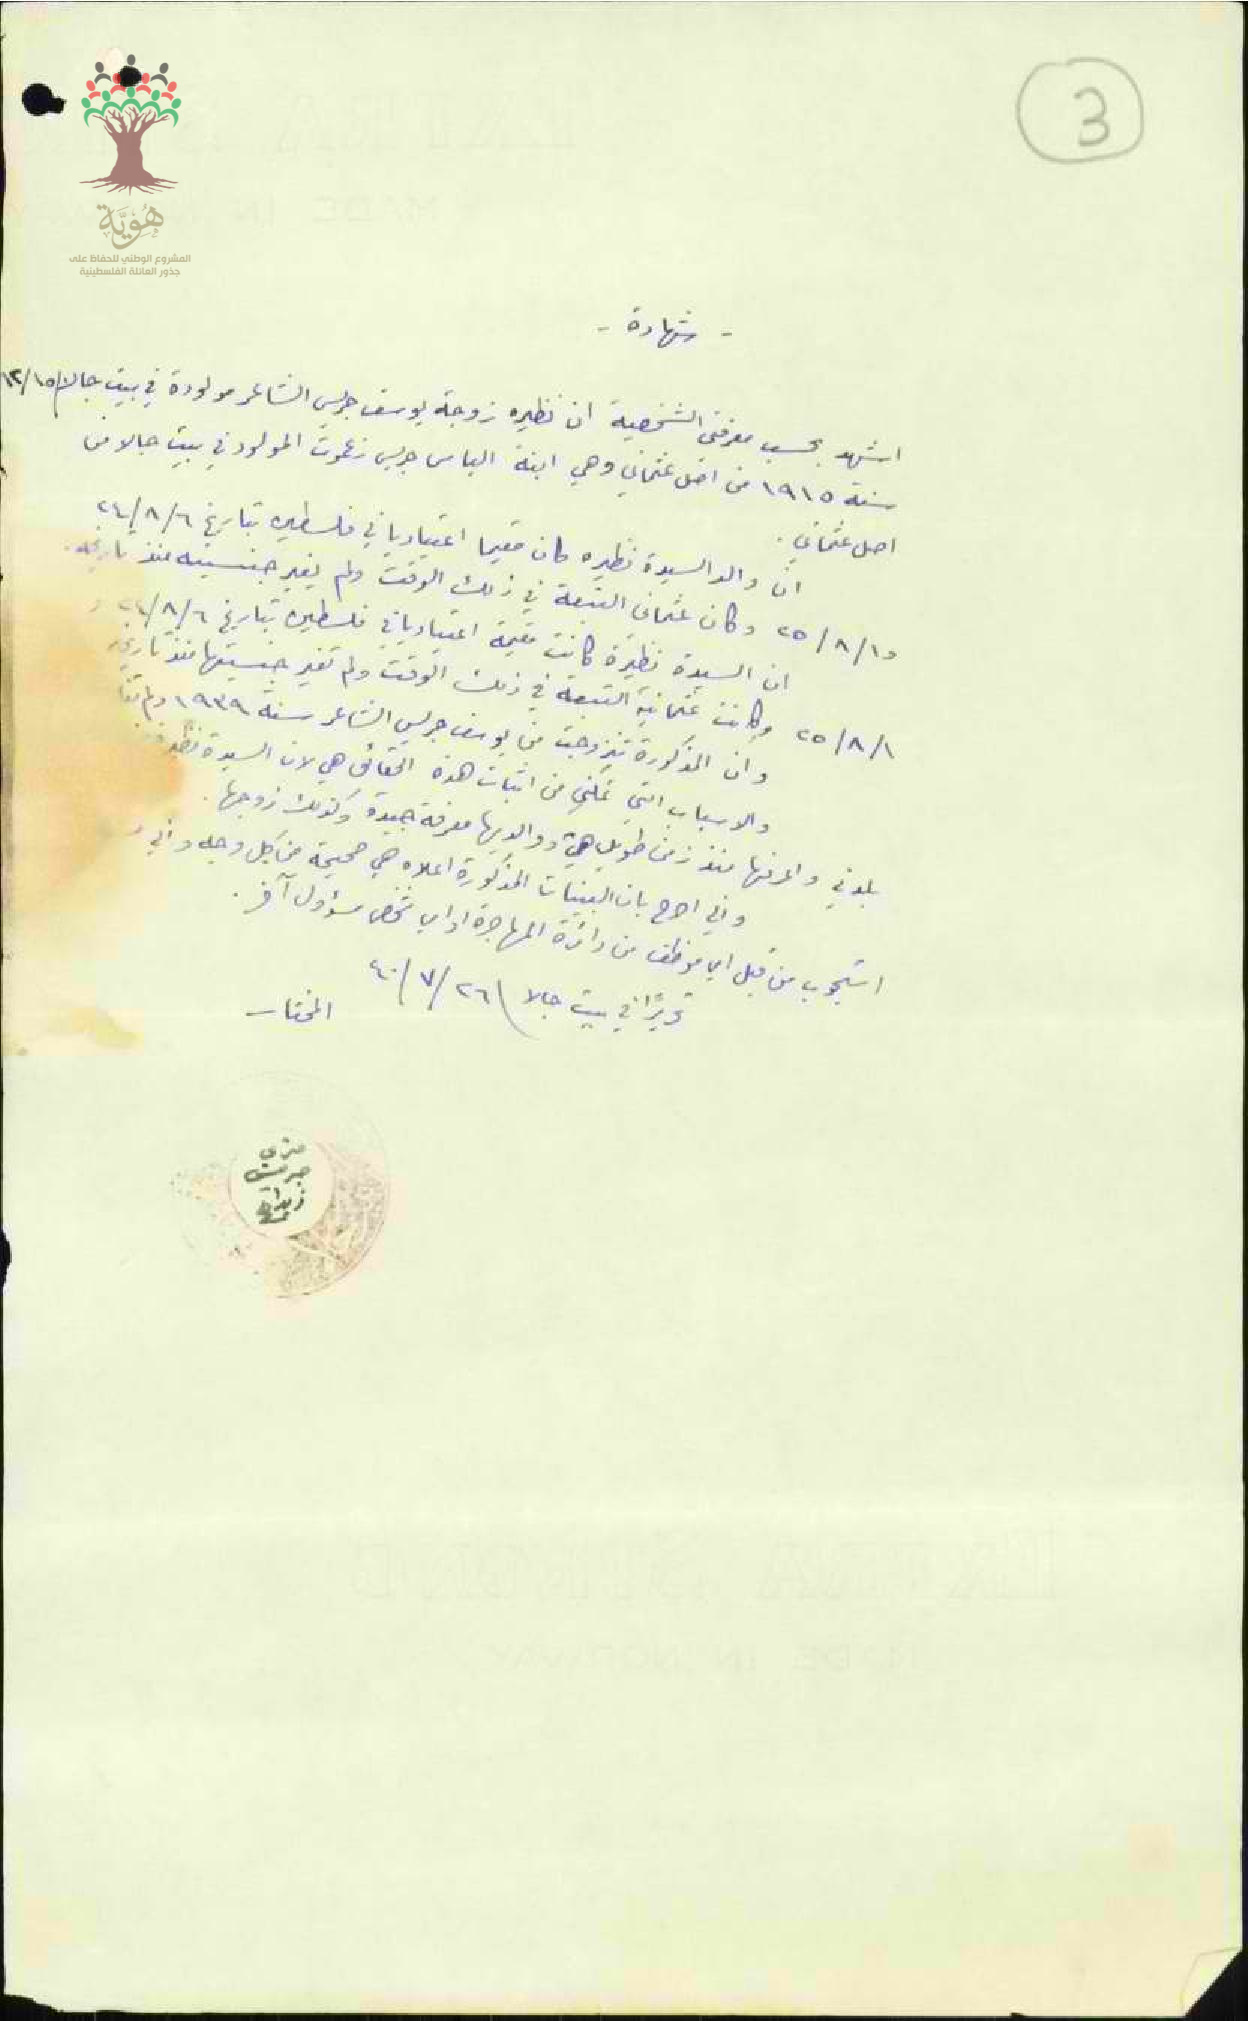 3
هُوِيَّة
المشروع الوطني للحفاظ على
جذور العائلة الفلسطينية
- شهادة -
اشهد بحسب معرفتي الشخصية ان نظيره زوجة يوسف جريس الشاعر مولودة في بيت جالا ١٢/١٥
سنة ١٩١٥ من اصل عثماني وهي ابنة الياس جريس زعموت المولود في بيت جالا من
اصل عثماني.
ان والد السيدة نظيره كان مقيما اعتياديا في فلسطين بتاريخ ٢٤/٨/٦
و ٢٥/٨/١ وكان عثماني التبعة في ذلك الوقت ولم يغير جنسيته منذ تاريخه.
ان السيدة نظيرة كانت مقيمة اعتياديا في فلسطين بتاريخ ٢٤/٨/٦ و
٢٥/٨/١ وكانت عثمانية التبعة في ذلك الوقت ولم تغير جنسيتها منذ تاريخه
وان المذكورة تزوجت من يوسف جريس الشاعر سنة ١٩٣٩ ولم
والاسباب التي تمكني من اثبات هذه الحقائق هي لان السيدة نظيره
بلدي واعرفها منذ زمن طويل هي ووالديها معرفة جيدة وكذلك زوجها.
واني اصرح بان البينات المذكورة اعلاه هي صحيحة من كل وجه واني
استجوب من قبل اي موظف من دائرة المهاجرة او اي شخص مسؤول آخر.
تحريرًا في بيت جالا ٤٠/٧/٢٦
المختار
EXTRA STRONG
MADE IN NORWAY